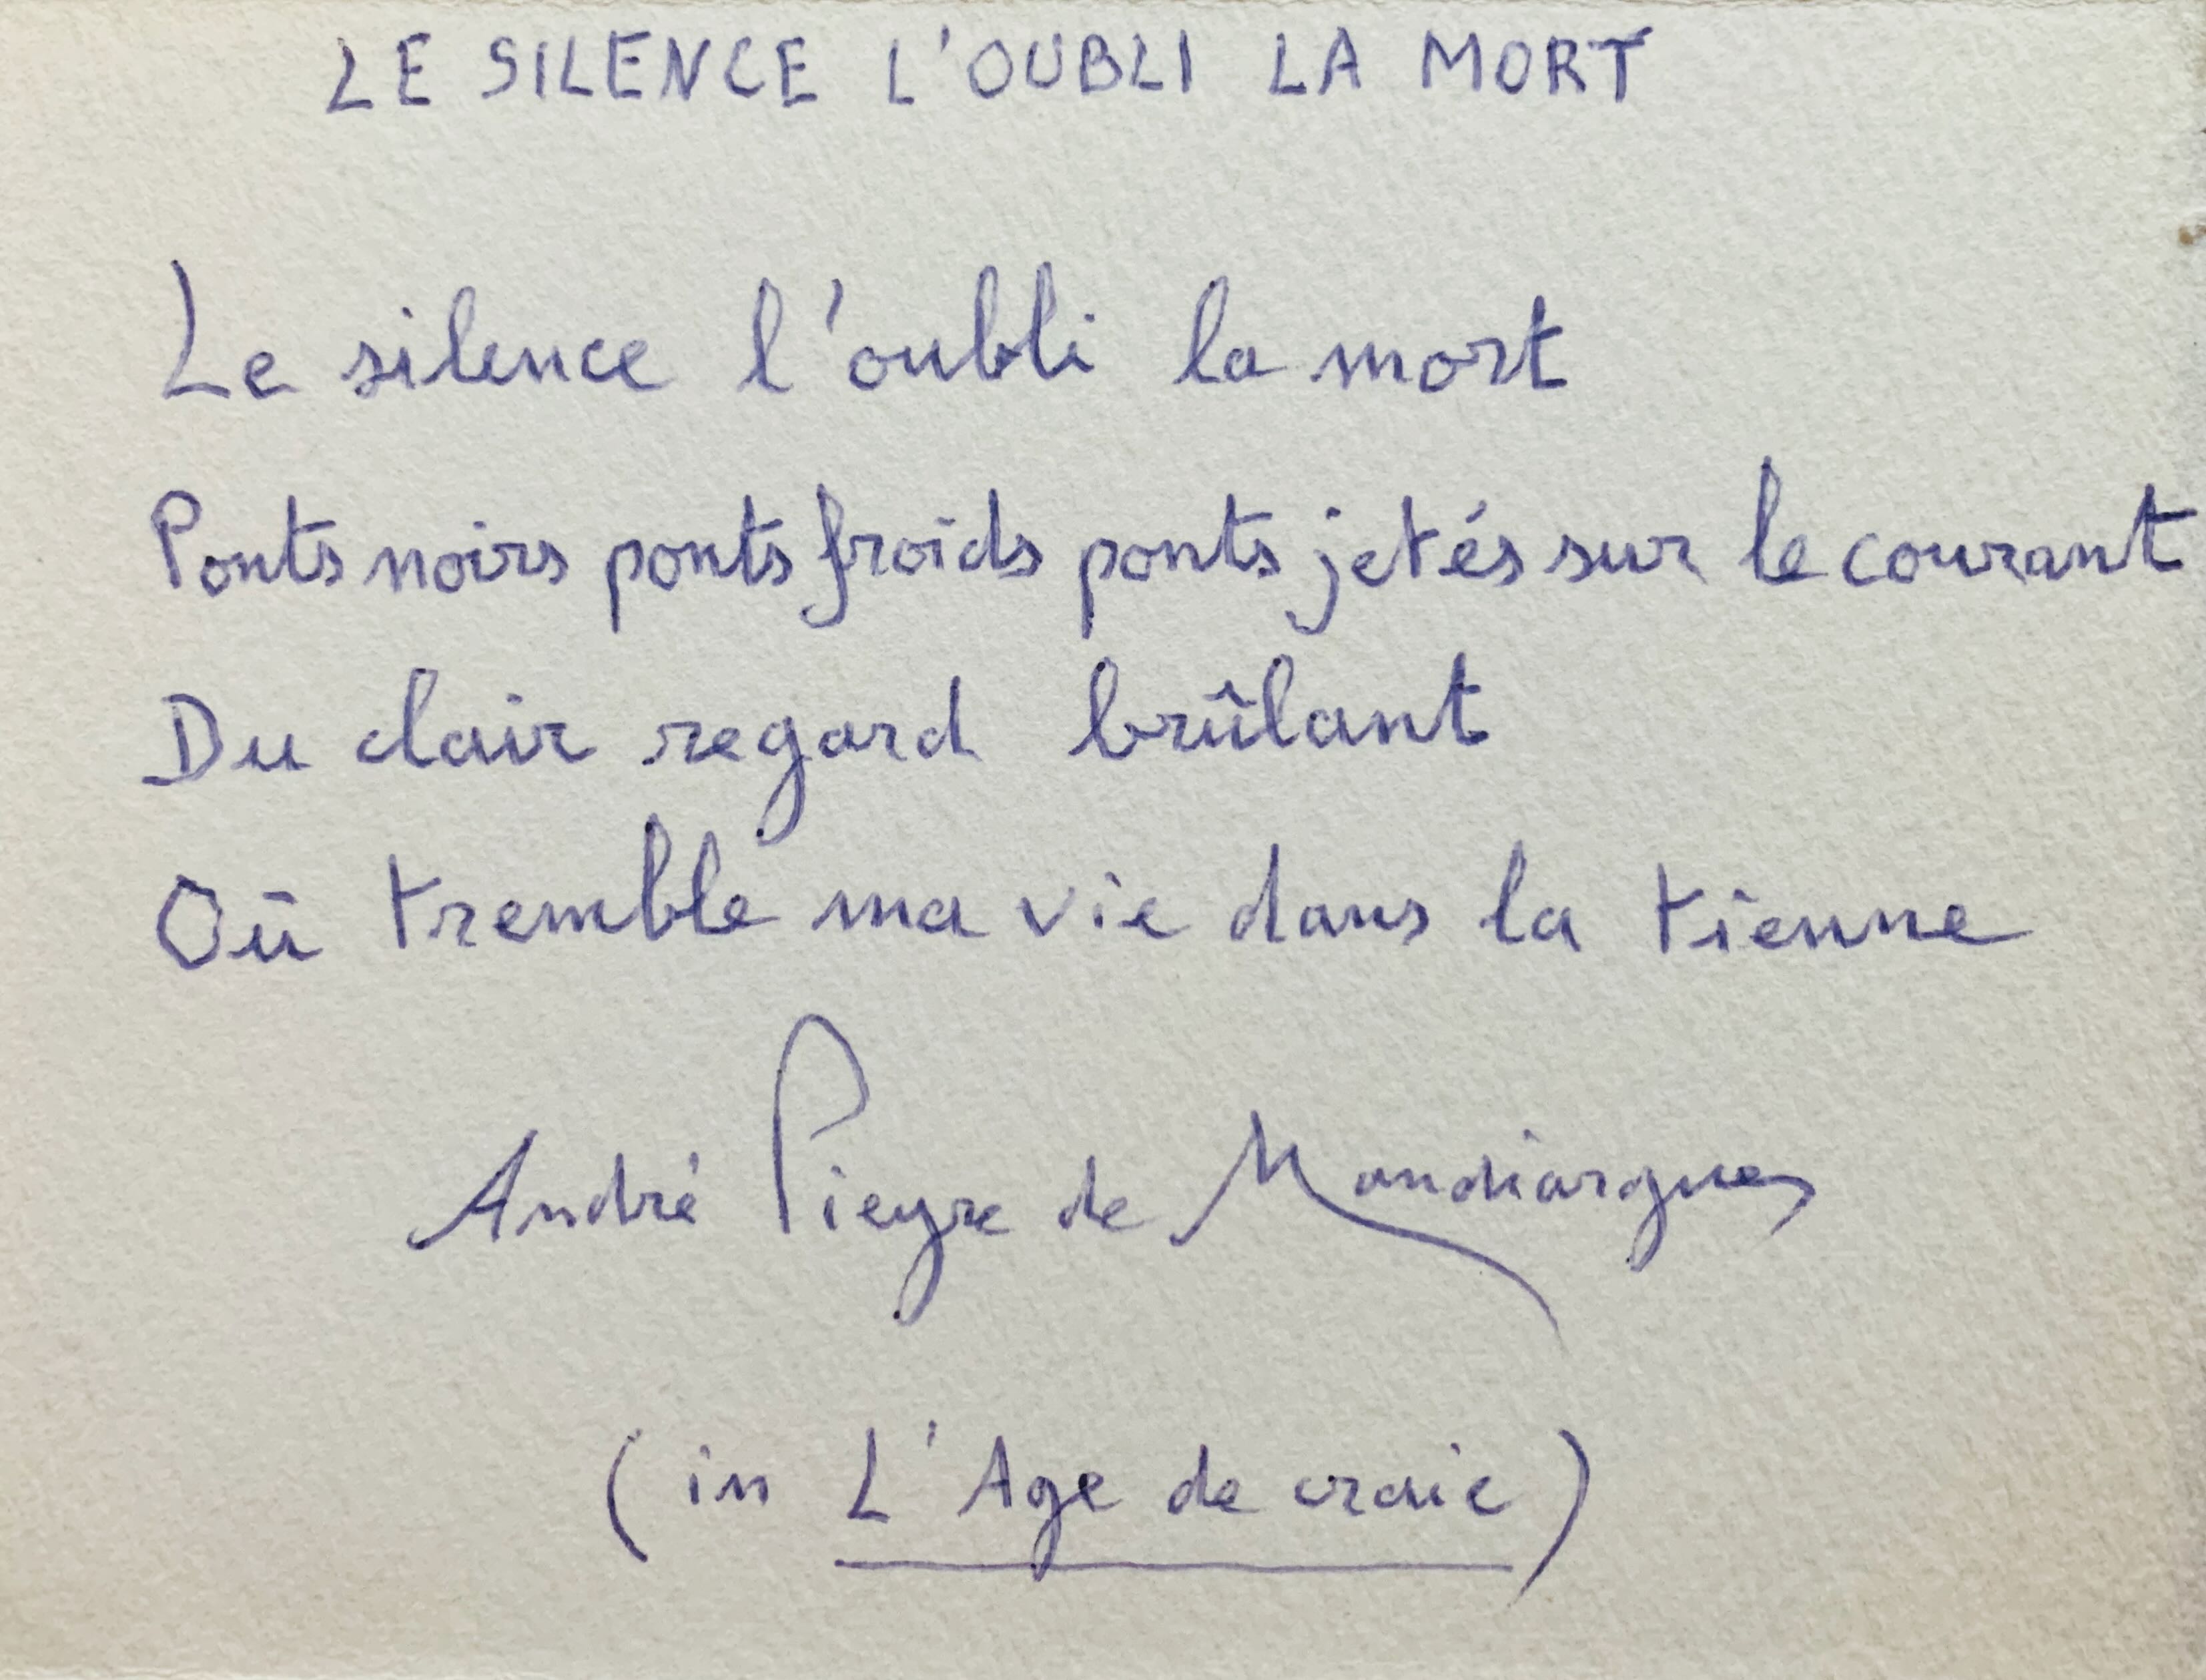 LE SILENCE L'OUBLI LA MORT
Le silence l'oubli la mort
Ponts noirs ponts froids ponts jetés sur le courant
Du clair regard brûlant
Où tremble ma vie dans la tienne
André Pieyre de Mandiargues
(in L'Age de craie)